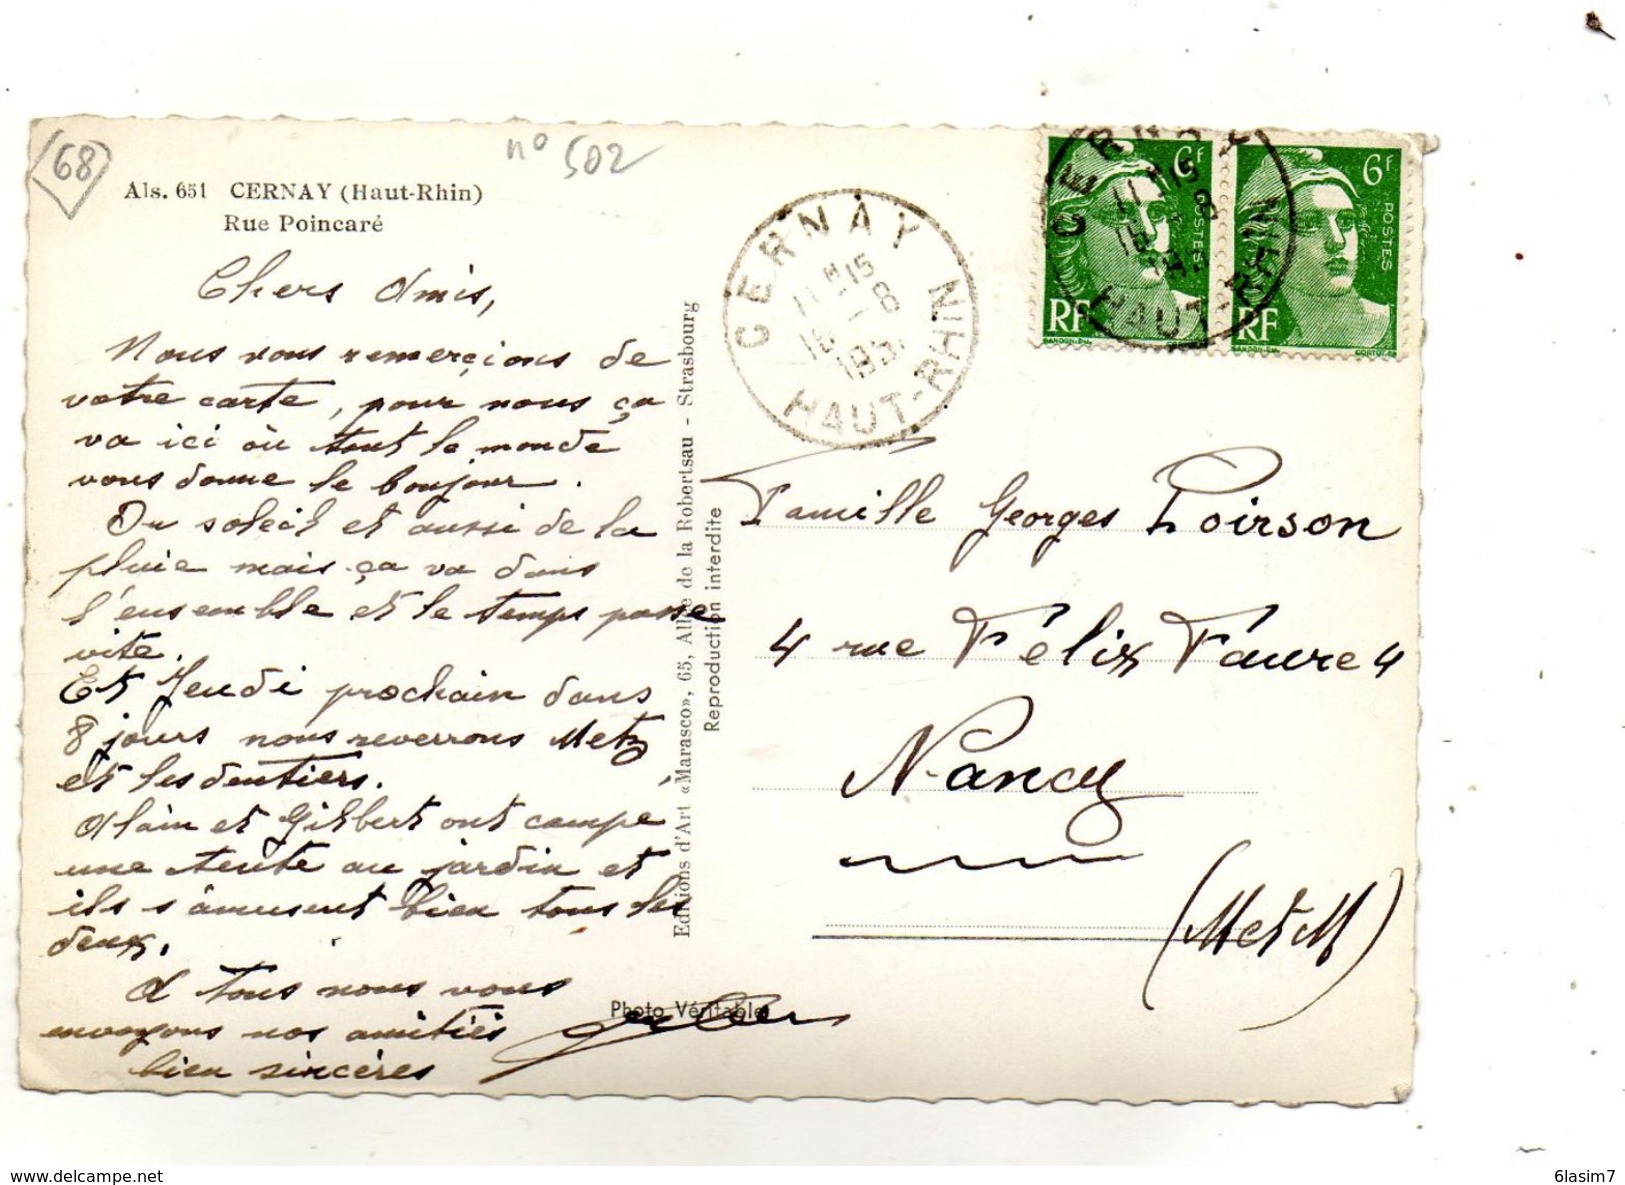 68
n° 502
Als. 651 CERNAY (Haut-Rhin)
Rue Poincaré
Chers Amis,
Nous vous remerçions de
votre carte, pour nous ça
va ici où tout le monde
vous donne le bonjour.
Du soleil et aussi de la
pluie mais ça va dans
l'ensemble et le temps passe
vite.
Et Jeudi prochain dans
8 jours nous reverrons Metz
et les dentiers.
Alain et Gilbert ont campé
une tente au jardin et
ils s'amusent bien tous les
deux.
A tous nous vous
envoyons nos amitiés
bien sincéres
Editions d'Art «Marasco», 65, Allée de la Robertsau - Strasbourg
Reproduction interdite
Photo Véritable
CERNAY
11H15
16 - 8
1951
HAUT-RHIN
6f
POSTES
RF
GANDON-DEL
6f
POSTES
RF
GANDON-DEL
CERNAY
11H15
HAUT-RHIN
Famille Georges Poirson
4 rue Félix Faure 4
Nancy
(M et M)
6lasim7